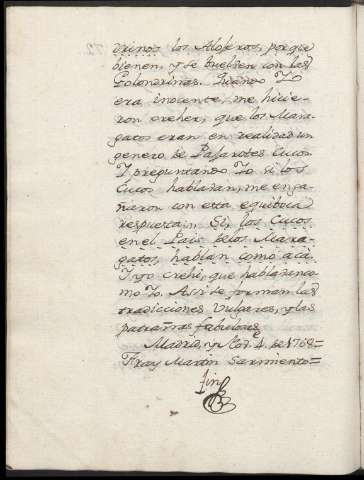 drinos los Alojeros, porque
vienen, y se buelben con las
Golondrinas. Quando Yo
era inocente, me hicie-
ron creher, que los Mara-
gatos eran en realidad un
genero de Pajarotes Cucos.
Y preguntando Yo si los
Cucos hablaban, me enga-
ñaron con esta equiboca
respuesta. Si, los Cucos
en el Pais de los Mara-
gatos, hablan como acá.
Y yo crehí, que hablaban co
mo Yo. Asi se forman las
tradicciones Vulgares, y las
patrañas fabulosas.
Madrid, y 4, de 1768=
Fray Martin Sarmiento=
Fin